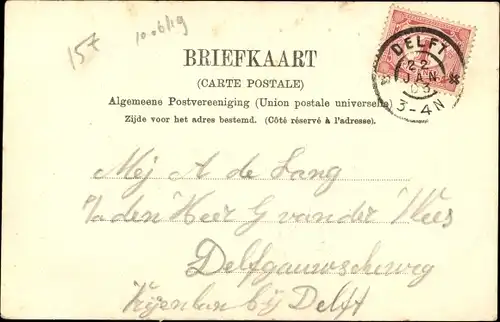 15+
BRIEFKAART
(CARTE POSTALE)
Algemeene Postvereeniging (Union postale universelle)
Zijde voor het adres bestemd. (Côté réservé à l'adresse).
DELFT
22
JAN
03
3-4N
Mej A de Lang
den Heer G van der Wees
Delfgauwscheweg
bij Delft